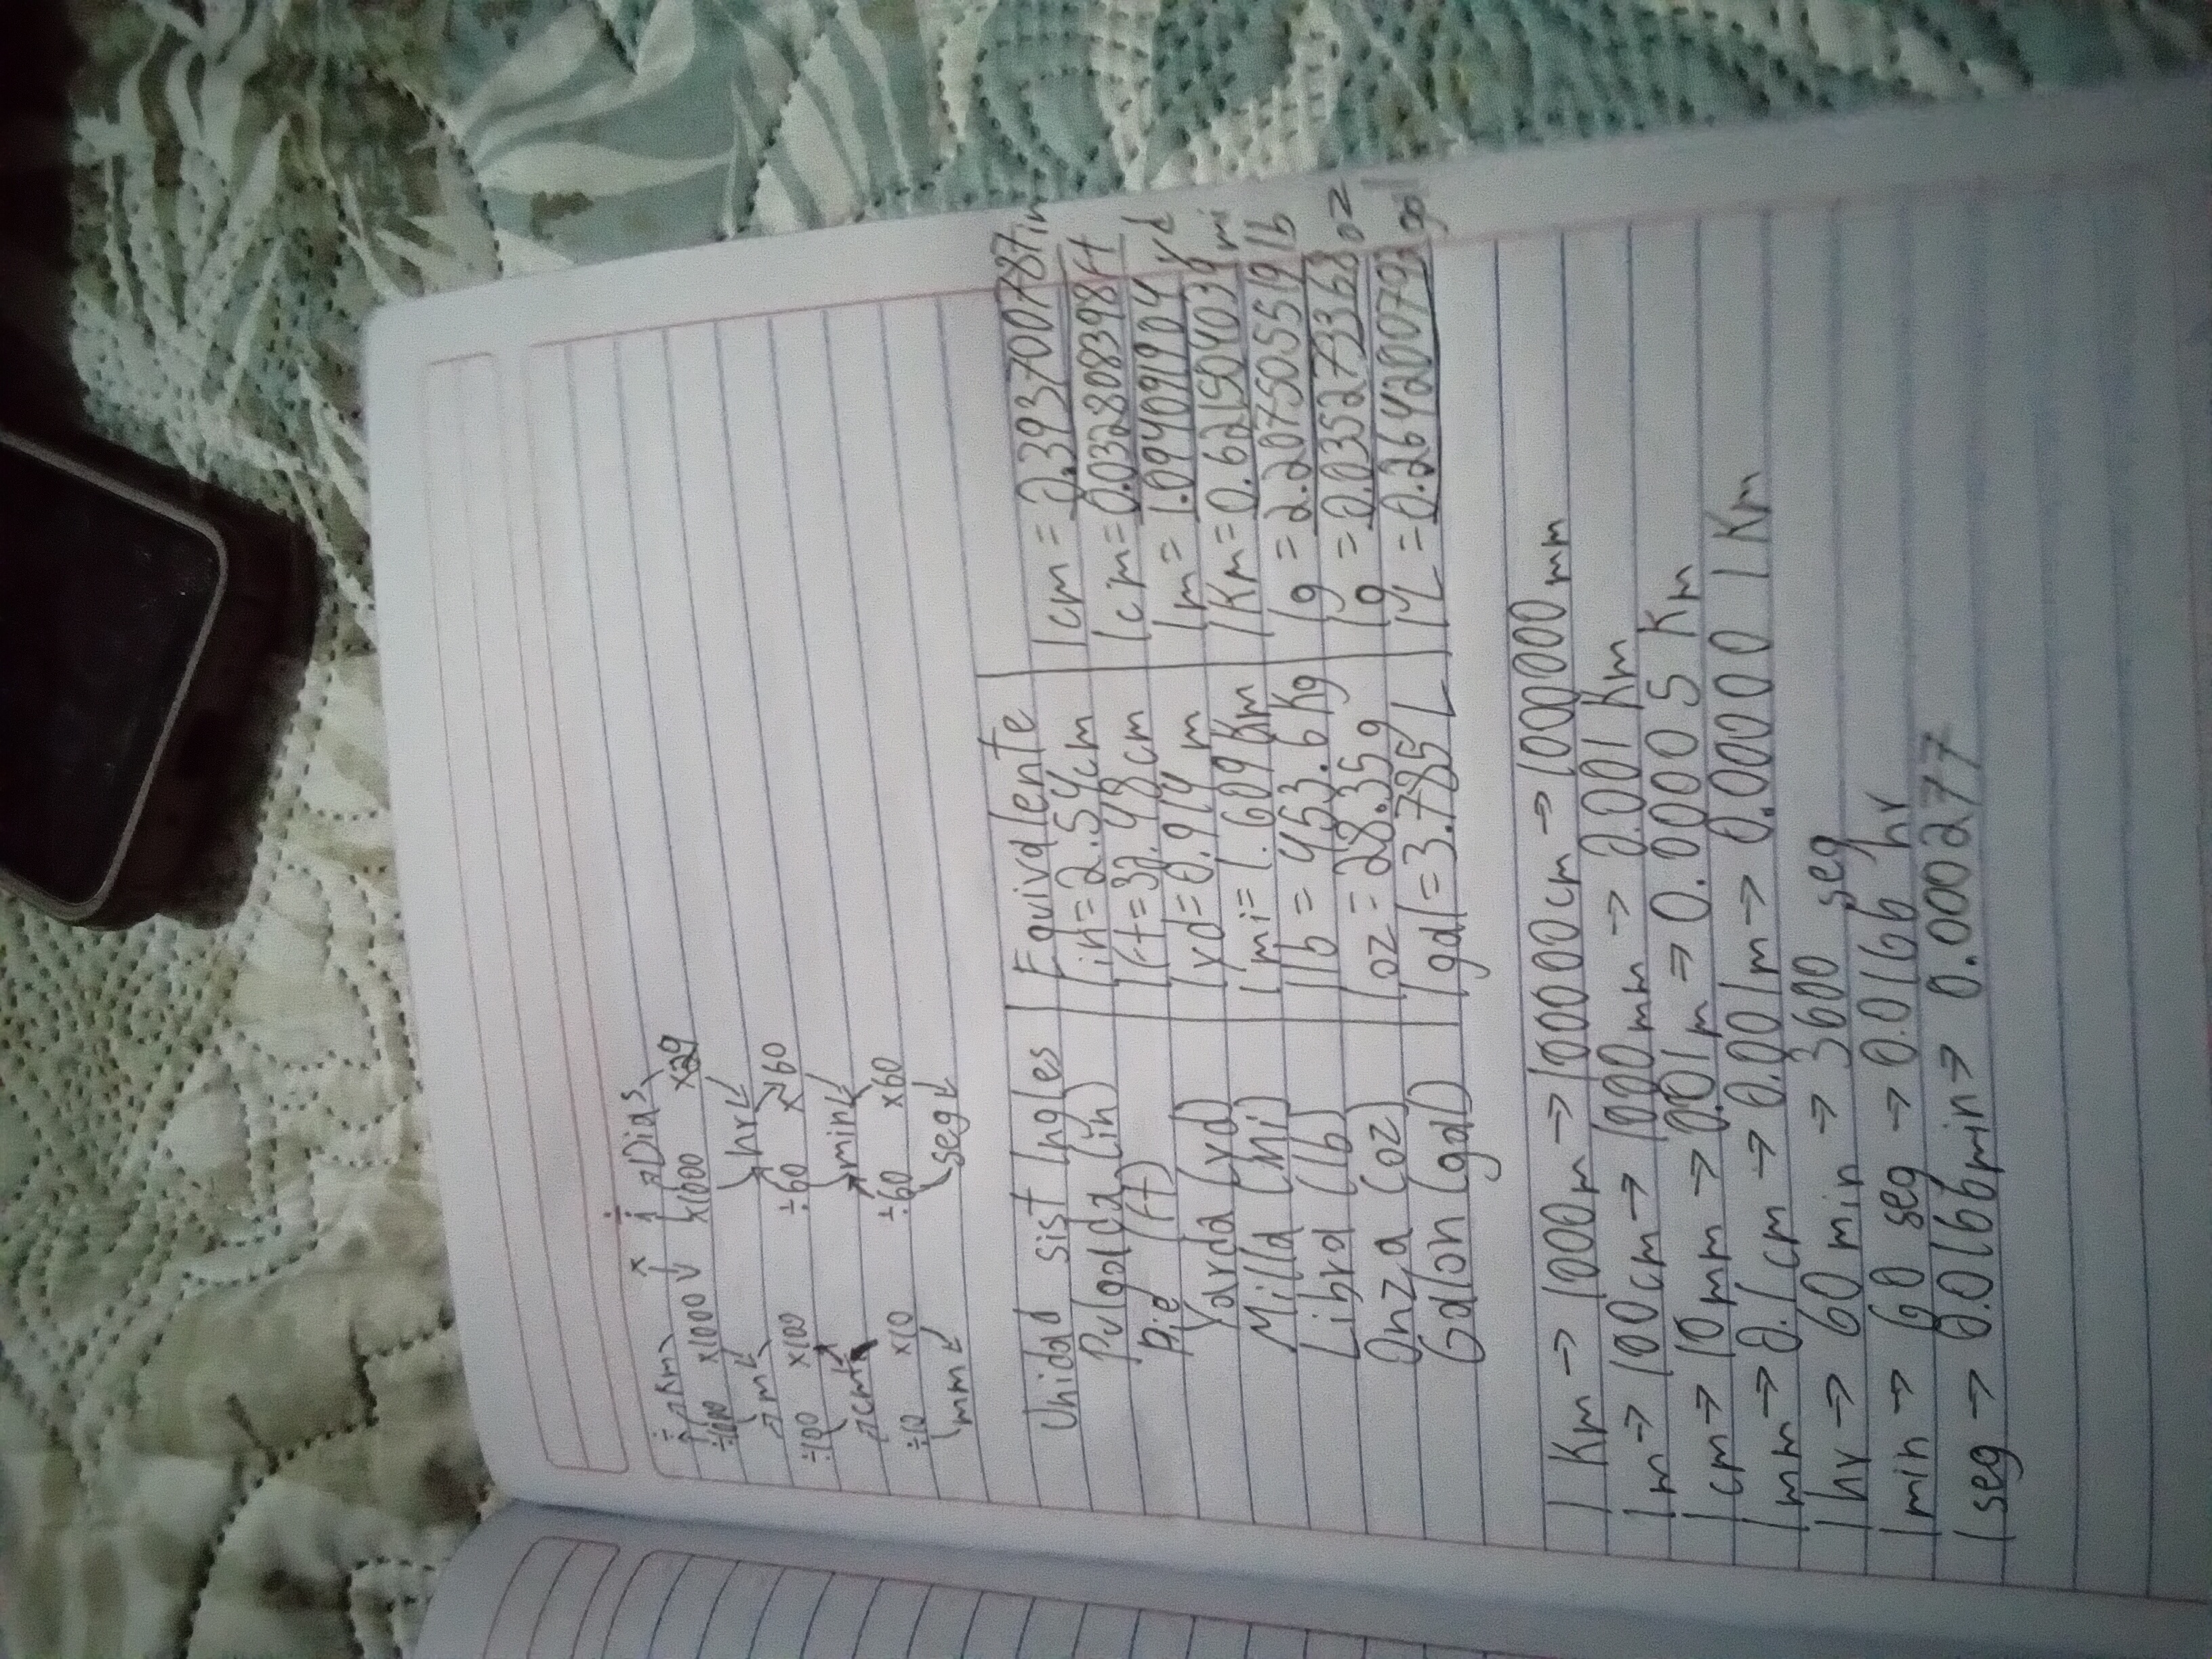 ÷ Km x ÷ Dias
÷1000 x1000 x1000 x29
m hr
÷100 x100 ÷60 x60
cm min
÷10 x10 ÷60 x60
mm seg
Unidad sist Ingles | Equivalente
Pulgada (in) | 1in=2.54cm | 1cm = 0.393700787in
Pie (ft) | 1ft=32.48cm | 1cm=0.032808398ft
Yarda (yd) | 1yd=0.914 m | 1m= 1.094091904 yd
Milla (Mi) | 1mi=1.609Km | 1Km=0.621504039 mi
Libra (lb) | 1lb = 453.6Kg | 1g = 2.207505519lb
Onza (oz) | 1oz=28.35g | 1g = 0.035273368oz
Galon (gal) | 1gal=3.785L | 1L=0.264200793gal
1Km→1000m→100000cm→1000000mm
1m→100cm→1000mm→0.001Km
1cm→10mm→0.01m→0.00005Km
1mm→0.1cm→0.001m→0.000001Km
1hr→60min→3600 seg
1min→60 seg→0.0166 hr
1seg→0.0166min→0.000277